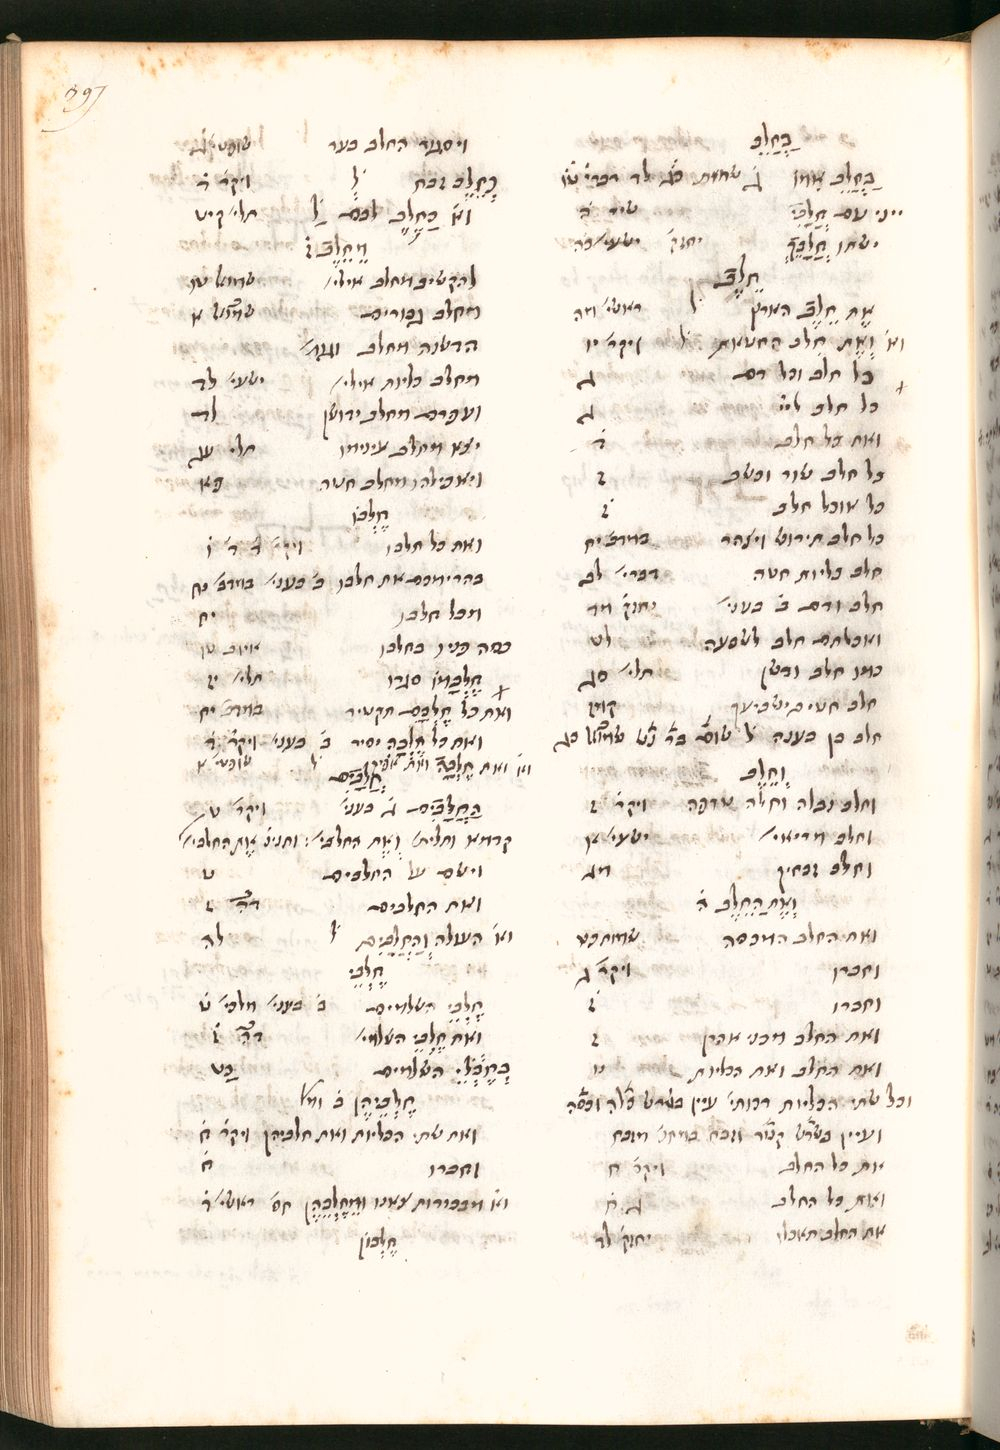 בַּחֲלֵב
בַּחֲלֵב אִמּוֹ ג̇ שמות כג̇ לד דברי׳ יד
ייני עם חֲלָבִי שיר ה
ישתו חֲלָבֵךְ יחזק׳ כה
חֵלֶב
את חֵלֶב הארץ ל̇ ראשי׳ מה
וא׳ ואת חלב החטאת ל̇ ויקר׳ יו
כל חלב וכל דם ג
כל חלב ליי׳ ג
ואת כל חלב
כל חלב שור וכשב ז
כל אוכל חלב ז
כל חלב תירוש ויצהר במדב׳ יח
חלב כליות חטה דברי׳ לב
חלב ודם ב̇ בעני׳ יחזק׳ מד
ואכלתם חלב לשבעה לט
כמו חלב ודשן תלי׳ סג
חלב חטים ישביעך קמז
חלב בן בענה ל̇ שום בר נש שמואל כג
וְחֵלֶב
וחלב נבלה וחלב טרפה ויקר׳ ז
וחלב מריאי׳ ישעי׳ א
וחלב זבחיך מג
וְאֶת הַחֵלֶב ה̇
ואת החלב המכסה שמות כט
וחברו ויקר׳ ג
וחברו ז
ואת החלב מכני אהרן ז
ואת החלב ואת הכליות יו
וכל שתי הכליות דכותי׳ עיין בשרש כלה וכסה
ועיין בשרש קטר וזבח במחנ׳ מזבח
את כל החלב ויקר׳ ח
ואת כל החלב ג̇ ח̇
את החלב תאכלו יחזק׳ לד
ויסגור החלב בעד שופטי׳ ג
כְּחֵלֶב זבח ל̇ ויקר׳ ד
וא׳ כַּחֵלֶב לבם ל̇ תלי׳ קיט
מֵחֵלֶב ז̇
להקשיב מחלב אילי׳ שמואל טו
מחלב גבורים שמואל א
הדשנה מחלב וגו׳
מחלב כליות אילי׳ ישעי׳ לד
ועפרם מחלב ידושן לד
יצא מחלב עינימו תלי׳ עג
ויאכילהו מחלב חטה פא
חֶלְבּוֹ
ואת כל חלבו ויקר׳ ד̇ ד̇ ו̇
בהרימכם את חלבו ב̇ בעני׳ במדב׳ יח
מכל חלבו יח
כסה פניו בחלבו איוב טו
חֶלְבָּמוֹ סגרו תלי׳ יז
ואת כל חֶלְבָּם תקטיר במדב׳ יח
ואת כל חֶלְבָּהּ יסיר ב̇ בעני׳ ויקר׳ ד
וא׳ ואת חֶלְבָּה ואת אפיק ל̇ שופטי׳ א
חֲלָבִים
הַחֲלָבִים ג̇ בעני׳ ויקר׳ ט
קדמא ותלית׳ וְאֶת החלבי׳ ותנינ׳ אֶת החלבי׳
וישם על החלבים ט
ואת החלבים דה׳ ז
וא׳ העולה וְהַחֲלָבִים ל̇ לה
חֶלְבֵי
חֶלְבֵי השלמים ב̇ בעני׳ מלכי׳ ט
ואת חֶלְבֵי השלמי׳ דה׳ ז
בְּחֶלְבֵי השלמים כט
חֶלְבֵיהֶן ב̇ וחד
ואת שתי הכליות ואת חלביהן ויקר׳ ח
וחברו ח
וא׳ מבכורות צאנו וּמֵחֶלְבֵהֶן חס׳ ראשי׳ ד
חֶלְבּוֹן